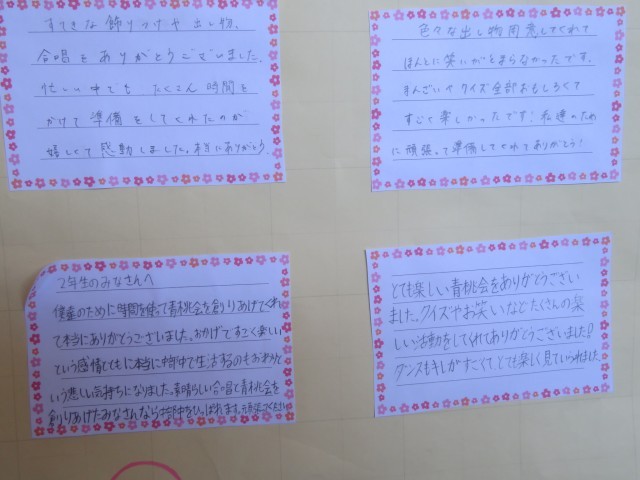 すてきな飾りつけや出し物、
合唱をありがとうございました。
忙しい中でも たくさん時間を
かけて準備をしてくれたのが
嬉しくて感動しました。本当にありがとう。
色々な出し物用意してくれて
ほんとに笑いがとまらなかったです。
まんざいやクイズ全部おもしろくて
すごく楽しかったです!私達のため
に頑張って準備してくれてありがとう!
2年生のみなさんへ
僕達のために時間を使って青桃会を創りあげてくれ
て本当にありがとうございました。おかげですごく楽しい
という感情とともに本当に 中で生活するのもおわりと
いう悲しい気持ちになりました。素晴らしい合唱と青桃会を
創りあげたみなさんなら 中をひっぱれます。頑張ってください
とても楽しい青桃会をありがとうござい
ました。クイズやお笑いなどたくさんの楽
しい活動をしてくれてありがとうございました!
ダンスもキレがすごくて、とても楽しく見ていられました